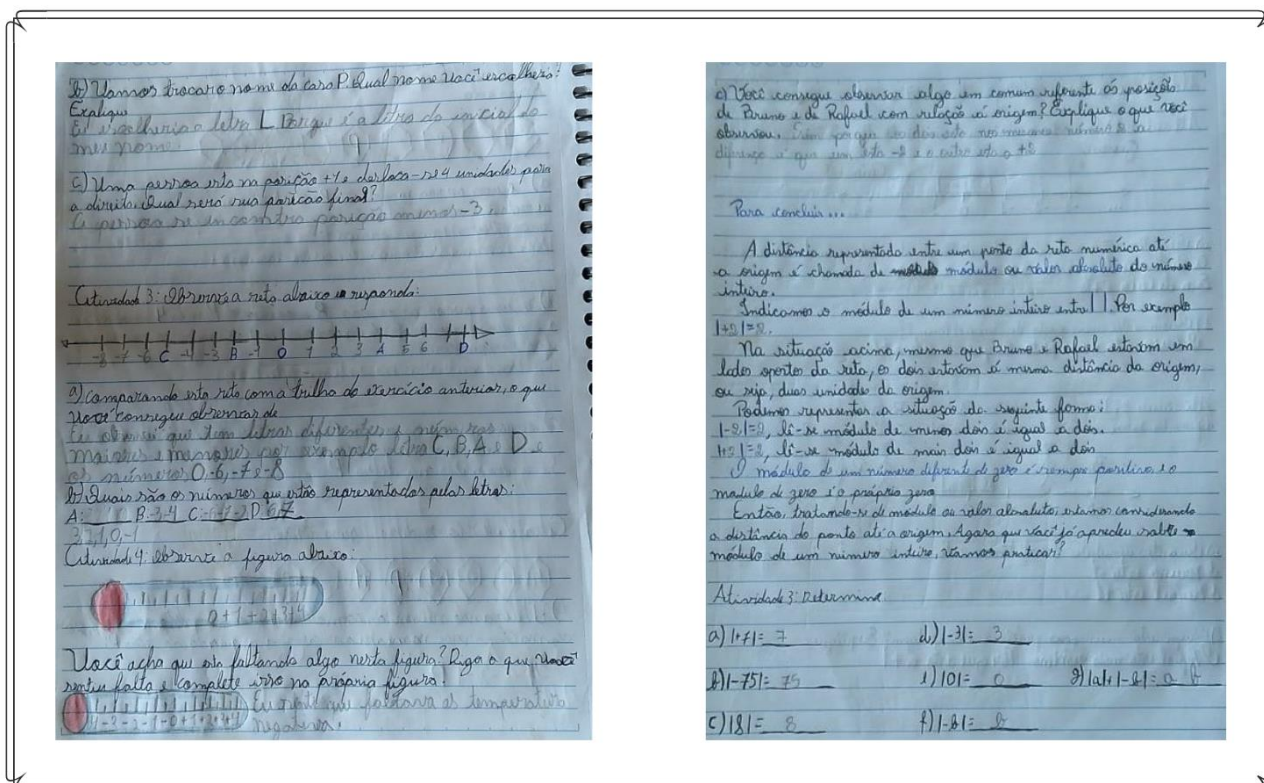 b) Vamos trocar o nome da casa P. Qual nome você escolheria?
Explique
Eu escolheria a letra L Porque é a letra da inicial do
meu nome
c) Uma pessoa esta na posição +1 e desloca-se 4 unidades para
a direita. Qual será sua posição final?
A pessoa se encontra posição menos -3.
Atividade 3: Observe a reta abaixo e responda:
-8 -7 -6 C -4 -3 B -1 0 1 2 3 A 5 6 D
a) comparando esta reta com a trilha do exercício anterior, o que
você consegue observar de
Eu observei que tem letras diferentes e números
maiores e menores por exemplo letra C, B, A e D e
os números 0, -6, -7 e -8
b) Quais são os números que estão representados pelas letras:
A: B: -3-4 C: D:
3, 2, 1, 0, -1
Atividade 4: Observe a figura abaixo:
0 +1 +2 +3 +4
Você acha que está faltando algo nesta figura? Diga o que você
sentiu falta e complete isso na própria figura.
-4 -3 -2 -1 0 +1 +2 +3 +4 Eu senti que faltava as temperatura
negativa.
c) Você consegue observar algo em comum referente às posição
de Bruno e de Rafael com relação à origem? Explique o que você
observou. Sim porque os dois estão nos mesmos número e a
diferença é que um esta -2 e o outro esta o +2
Para concluir...
A distância representada entre um ponto da reta numérica até
a origem é chamada de módulo ou valor absoluto do número
inteiro.
Indicamos o módulo de um número inteiro entre | |. Por exemplo
|+2|=2.
Na situação acima, mesmo que Bruno e Rafael estavam em
lados opostos da reta, os dois estavam à mesma distância da origem,
ou seja, duas unidade da origem.
Podemos representar a situação da seguinte forma:
|-2|=2, lê-se módulo de menos dois é igual a dois.
|+2|=2, lê-se módulo de mais dois é igual a dois
O módulo de um número diferente de zero é sempre positivo, e o
modulo de zero é o próprio zero
Então, tratando-se de módulo ou valor absoluto, estamos considerando
a distância do ponto até a origem. Agora que você já aprendeu sobre
módulo de um número inteiro, vamos praticar?
Atividade 3: Determine
a) |+7|= 7 d) |-3|= 3
b) |-75|= 75 e) |0|= 0 g) |a|+|-b|= a b
c) |8|= 8 f) |-b|= b